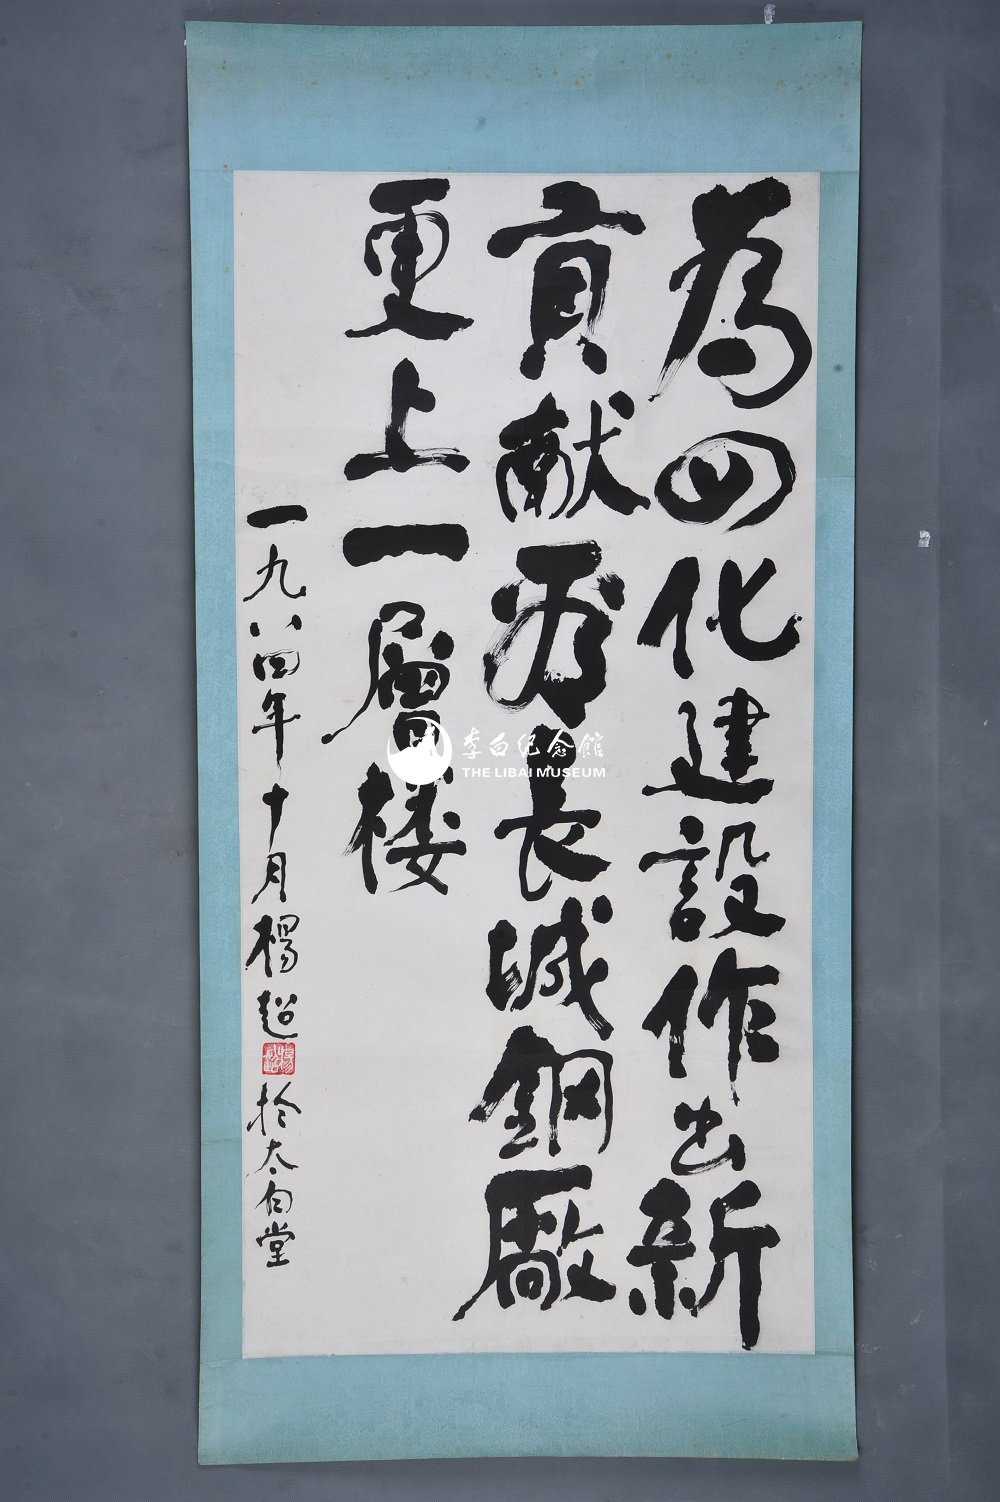 為四化建設作出新
貢献長城鋼廠
更上一層楼
一九八四年十月楊超
楊超
於太白堂
李白纪念馆
THE LIBAI MUSEUM